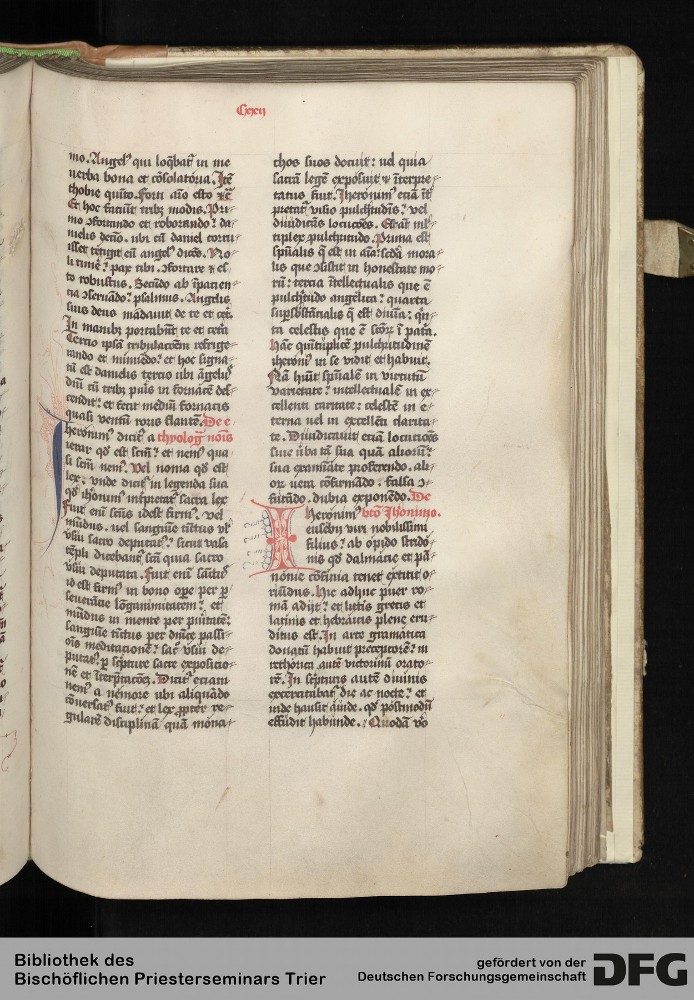 Cxxxij
mo. Angelꝰ qui loq̄batʳ in me
uerba bona et ꝯsolatoria. Itē
thobie quīto. Forti aīo esto ⁊cᷓ
Et hoc faciūt tribꝫ modis. Pri-
mo ꝯfortando et roborando? da
nielis decīo. ubi cū daniel corru
isset tetigit eū angelꝰ dicēs. No-
li timē? pax tibi. ꝯfortare ⁊ es
to robustus. Secūdo ab īpacien
tia ꝯseruādo? psalmus. Angelis
suis deus mādauit de te et cet.
In manibꝫ portabūt te et cetᷓa
Tercio ipsā tribulacōem refrige-
rando et minuēdo? et hoc signa-
tū est danielis tercio ubi āgelus
dn̄i cū tribꝫ pu̅is in fornacē des-
cendit? et fecit mediū fornacis
quasi ventū roris flantē. De e
heronimꝰ dicitʳ a thyolog̅ noīs
ierar qd̓ est scm̄? et nemꝰ qua
si scm̄ nemꝰ. Vel noma qd̓ est
lex. vnde dicitʳ in legenda sua
qd̓ ihonimꝰ int̓pretatʳ sacra lex
Fuit enī scūs idest firmꝰ. vel
mūdus. uel sanguīe tīctus vl̓
vsui sacro deputatꝰ? sicut vasa
tēpli dicebantʳ scā quia sacro
vsui deputata. Fuit enī sāctꝰ
id est firmꝰ in bono oꝑe per ꝑ
seuerācie lōganimitatem? et
mūdus in mente per puritatē?
sanguīe tīctus per dn̄ice passi-
oīs meditacionē? sacᷓ vsui de-
putatꝰ ꝑ sc̓pture sacre exposicio-
nē et īterp̓tacōeꝫ. Dicitʳ etiam
nemꝰ a nemore ubi aliquādo
cōuersatʳ fuit? et lex ꝓpter re-
gularē disciplinā quā mona-
chos suos docuit? uel quia
sacrā legē exposuit ⁊ īterpre-
tatus fuit. Iheronimꝰ etiā īt̓
pretatʳ visio pulchtudīs? vel
diiudicās locucōes. Est aūt ml̓-
tiplex pulchritudo. Prima est
spūalis q̄ est in aīa? scd̓a mora
lis que ꝯsistit in honestate mo
rū? tercia ītellectualis que ē
pulchritudo angelica? quarta
supsb̓stācialis q̄ est diuīa? qīn
ta celestis que ē sctōꝝ ī pat̓a.
Hāc quītuplicē pulchritudinē
iheronimꝰ in se vidit et habuit.
Nā hūit spūalē in virtutū
varietate? intellectualē in ex
cellenti caritate? celestē in e-
terna uel in excellēti clarita-
te. Diiudicauit eciā locucioēs
siue u̓ba tā sua quā alioruꝫ?
sua examīate proferendo. ali-
oꝝ uera ꝯfirmādo. falsa ꝯ-
futādo. dubia exponēdo. De
Iheronimꝰ bt̄o Iheronimo.
eusebij viri nobilissimi
filius? ab opido stridō-
nis qd̓ dalmacie et pā-
nonie cōfinia tenet extitit o-
riūdus. Hic adhuc puer ro-
mā adijt? et lr̄is grecis et
latinis et hebraicis plene eru-
ditus est. In arte gramatica
donatū habuit preceptorē? in
rethorica aūtē victorinū orato-
rē. In sc̓pturis autē diuinis
exercitabatʳ die ac nocte? et
inde hausit auide. qd̓ postmodū
effudit habunde. Quodā vo̓
Bibliothek des
Bischöflichen Priesterseminars Trier
gefördert von der
Deutschen Forschungsgemeinschaft
DFG